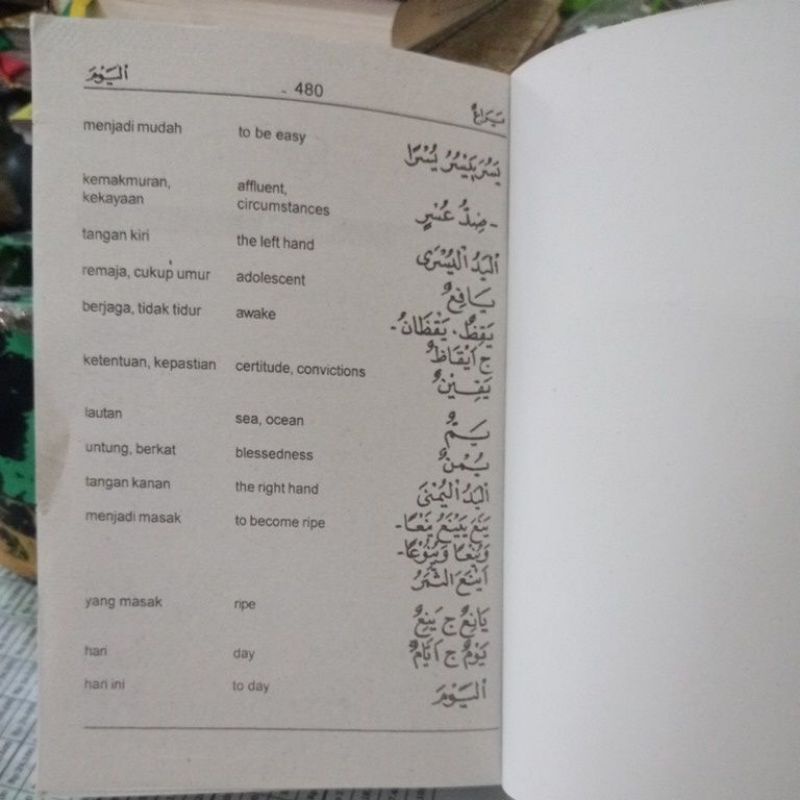 اليَوْمَ
- 480
يَرَاعٌ
menjadi mudah to be easy يَسُرَ يَيْسُرُ يُسْرًا
kemakmuran, affluent,
kekayaan circumstances - ضِدُّ عُسْرٍ
tangan kiri the left hand اَلْيَدُ الْيُسْرَى
remaja, cukup umur adolescent يَافِعٌ
berjaga, tidak tidur awake يَقِظٌ. يَقْظَانُ -
ج اَيْقَاظٌ
ketentuan, kepastian certitude, convictions يَقِيْنٌ
lautan sea, ocean يَمٌّ
untung, berkat blessedness يُمْنٌ
tangan kanan the right hand اَلْيَدُ الْيُمْنَى
menjadi masak to become ripe يَنَعَ يَيْنَعُ يَنْعًا -
وَيُنْعًا وَيُنُوْعًا -
اَيْنَعَ الثَّمَرُ
yang masak ripe يَانِعٌ ج يَنْعٌ
hari day يَوْمٌ ج اَيَّامٌ
hari ini to day اَلْيَوْمَ